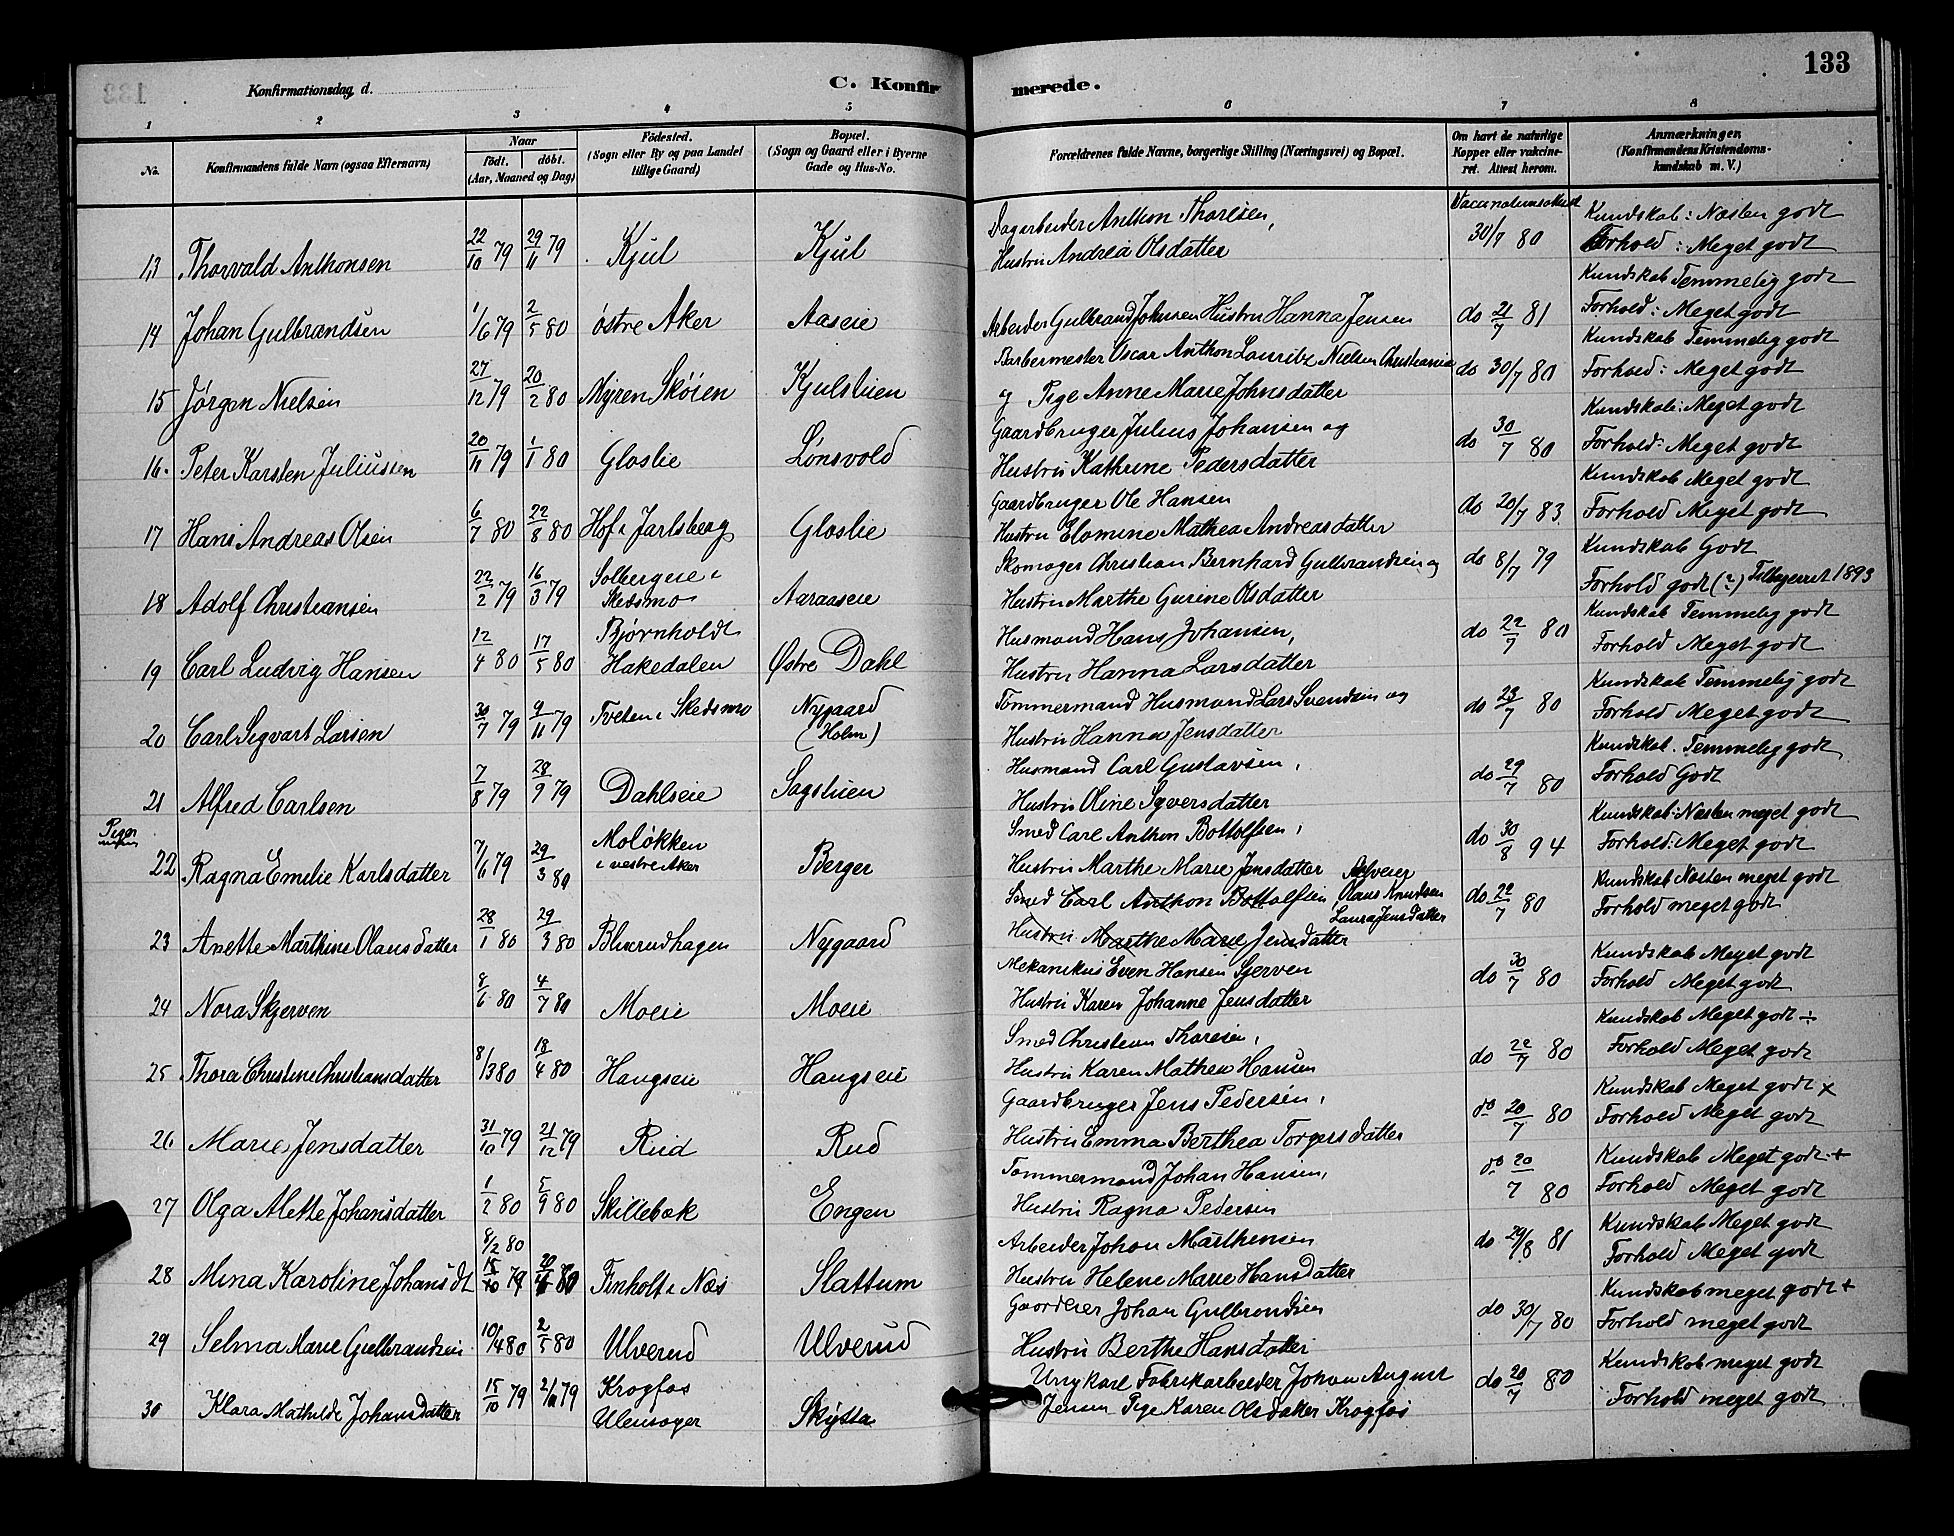 133
Konfirmationsdag d.
C. Konfirmerede.
1 2 3 4 5 6 7 8
No. Konfirmandens fulde Navn (ogsaa Efternavn) Naar født. døbt. (Aar, Maaned og Dag) Fødested. (Sogn eller By og paa Landet tillige Gaard) Bopæl. (Sogn og Gaard eller i Byerne Gade og Hus-No. Forældrenes fulde Navne, borgerlige Stilling (Næringsvei) og Bopæl. Om havt de naturlige Kopper eller vakcineret. Attest herom. Anmærkninger. (Konfirmandens Kristendomskundskab m. V.)
13 Thorvald Anthonsen 22/10 79 29/11 79 Kjul Kjul Dagarbeider Anthon Thoresen, Hustru Andrea Olsdatter 30/7 80 Kundskab: Næsten godt Forhold: Meget godt
14 Johan Gulbrandsen 1/6 79 2/5 80 østre Aker Aaseie Arbeider Gulbrand Johnsen Hustru Hanna Jensen do 21/7 81 Kundskab Temmelig godt Forhold: Meget godt
15 Jørgen Nielsen 27/12 79 20/2 80 Myren Skøien Kjulstuen Barbermester Oscar Anthon Lauritz Nielsen Christiania og Pige Anne Marie Johnsdatter do 30/7 80 Kundskab Temmelig godt Forhold: Meget godt
16. Peter Karsten Juliussen 20/11 79 1/1 80 Gloslie Lønsvold Gaardbruger Julius Johansen og Hustru Kathrine Pedersdatter do 30/7 80 Kundskab: Meget godt Forhold: Meget godt
17 Hans Andreas Olsen 6/7 80 22/8 80 Hof i Jarlsberg Gloslie Gaardbruger Ole Hansen Hustru Elomine Mathea Andreasdatter do 20/7 83 Kundskab Meget godt Forhold Meget godt
18 Adolf Christiansen 22/2 79 16/3 79 Solbergeie i Skedsmo Aaraaseie Skomager Christian Bernhard Gulbrandsen og Hustru Marthe Gurine Olsdatter do 8/7 79 Kundskab Godt Forhold godt (?) 1893
19 Carl Ludvig Hansen 12/4 80 17/5 80 Bjørnholdt Hakedalen Østre Dahl Husmand Hans Johansen, Hustru Hanna Larsdatter do 22/7 80 Kundskab Temmelig godt Forhold Meget godt
20 Carl Sigvart Larsen 30/7 79 9/11 79 Tveten i Skedsmo Nygaard (Holm) Tømmermand Husmand Lars Svendsen og Hustru Hanna Jensdatter do 23/7 80 Kundskab Temmelig godt Forhold Meget godt
21 Alfred Carlsen 7/8 79 28/9 79 Dahlseie Sagstuen Husmand Carl Gustavsen, Hustru Oline Syversdatter do 29/7 80 Kundskab. Temmelig godt Forhold Godt
Piger
22 Ragna Emilie Karlsdatter 7/6 79 29/3 80 Moløkken i vestre Aker Berger Smed Carl Anthon Bottolfsen, Hustru Marthe Marie Jensdatter do 30/8 94 Kundskab: Næsten meget godt Forhold: Meget godt
23 Anette Marthine Olausdatter 28/1 80 29/3 80 Bluerudhagen Nygaard Smed Carl Anthon Bottolfsen Hustru Marthe Marie Jensdatter Olaus Knudsen Laura Jensdatter do 22/7 80 Kundskab Næsten meget godt Forhold meget godt
24 Nora Skjerven 8/6 80 4/7 80 Moeie Moeie Mekanikus Even Hansen Sjerven Hustru Karen Johanne Jensdatter do 30/7 80 Kundskab Meget godt Forhold Meget godt
25 Thora Christine Christiansdatter 8/3 80 18/4 80 Haugseie Haugseie Smed Christian Thoresen, Hustru Karen Mathea Hansen do 20/7 80 Kundskab Meget godt ÷ Forhold Meget godt
26 Marie Jensdatter 31/10 79 21/12 79 Rud Rud Gaardbruger Jens Pedersen, Hustru Emma Berthea Torgersdatter do 20/7 80 Kundskab Meget godt x Forhold Meget godt
27 Olga Alette Johansdatter 1/2 80 5/9 80 Skillebæk Engen Tømmermand Johan Hansen, Hustru Ragna Pedersen do 20/7 80 Kundskab Meget godt + Forhold Meget godt
28 Mina Karoline Johansdt 8/2 80 Finholt i Næs Slattum Arbeider Johan Marthinsen Hustru Helene Marie Hansdatter do 29/8 81 Kundskab Meget godt Forhold Meget godt
29 Selma Marie Gulbrandsen 10/4 80 2/5 80 Ulverud Ulverud Gaardeier Johan Gulbrandsen Hustru Berthe Hansdatter do 30/7 80 Kundskab meget godt + Forhold meget godt
30 Klara Mathilde Johansdatter 15/10 79 79 Krogfos Ulensager Skytta Ungkarl Fabrikarbeider Johan August Jensen Pige Karen Olsdatter Krogfos do 20/7 80 Kundskab meget godt Forhold meget godt